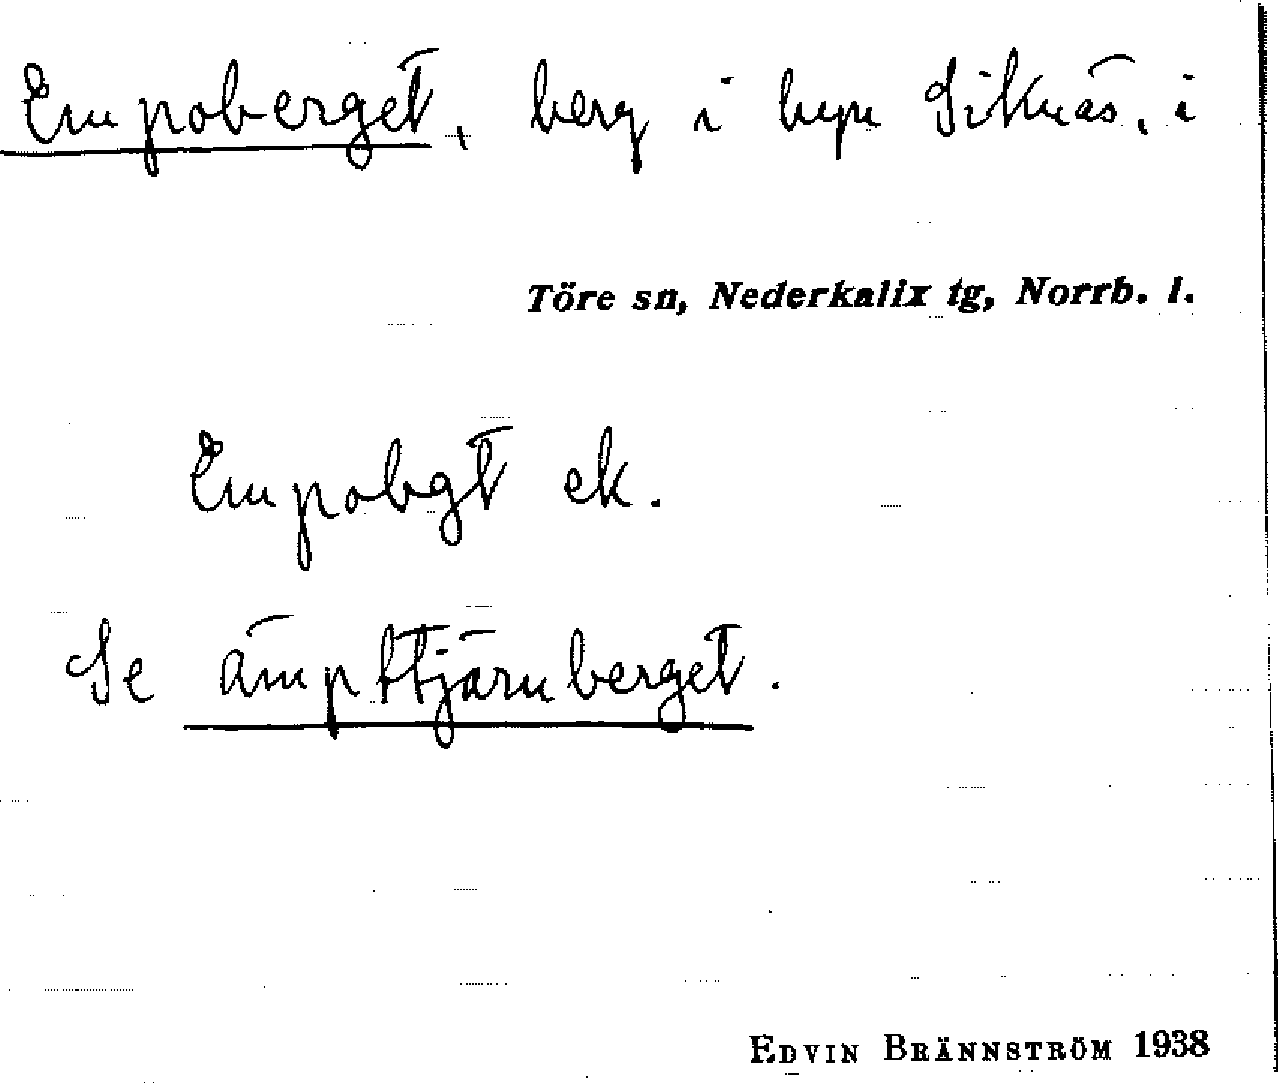 Empoberget, berg i byn Siknäs, i
Töre sn, Nederkalix tg, Norrb. l.
Empobgt ek.
Se ämpttjärnberget.
EDVIN BRÄNNSTRÖM 1938